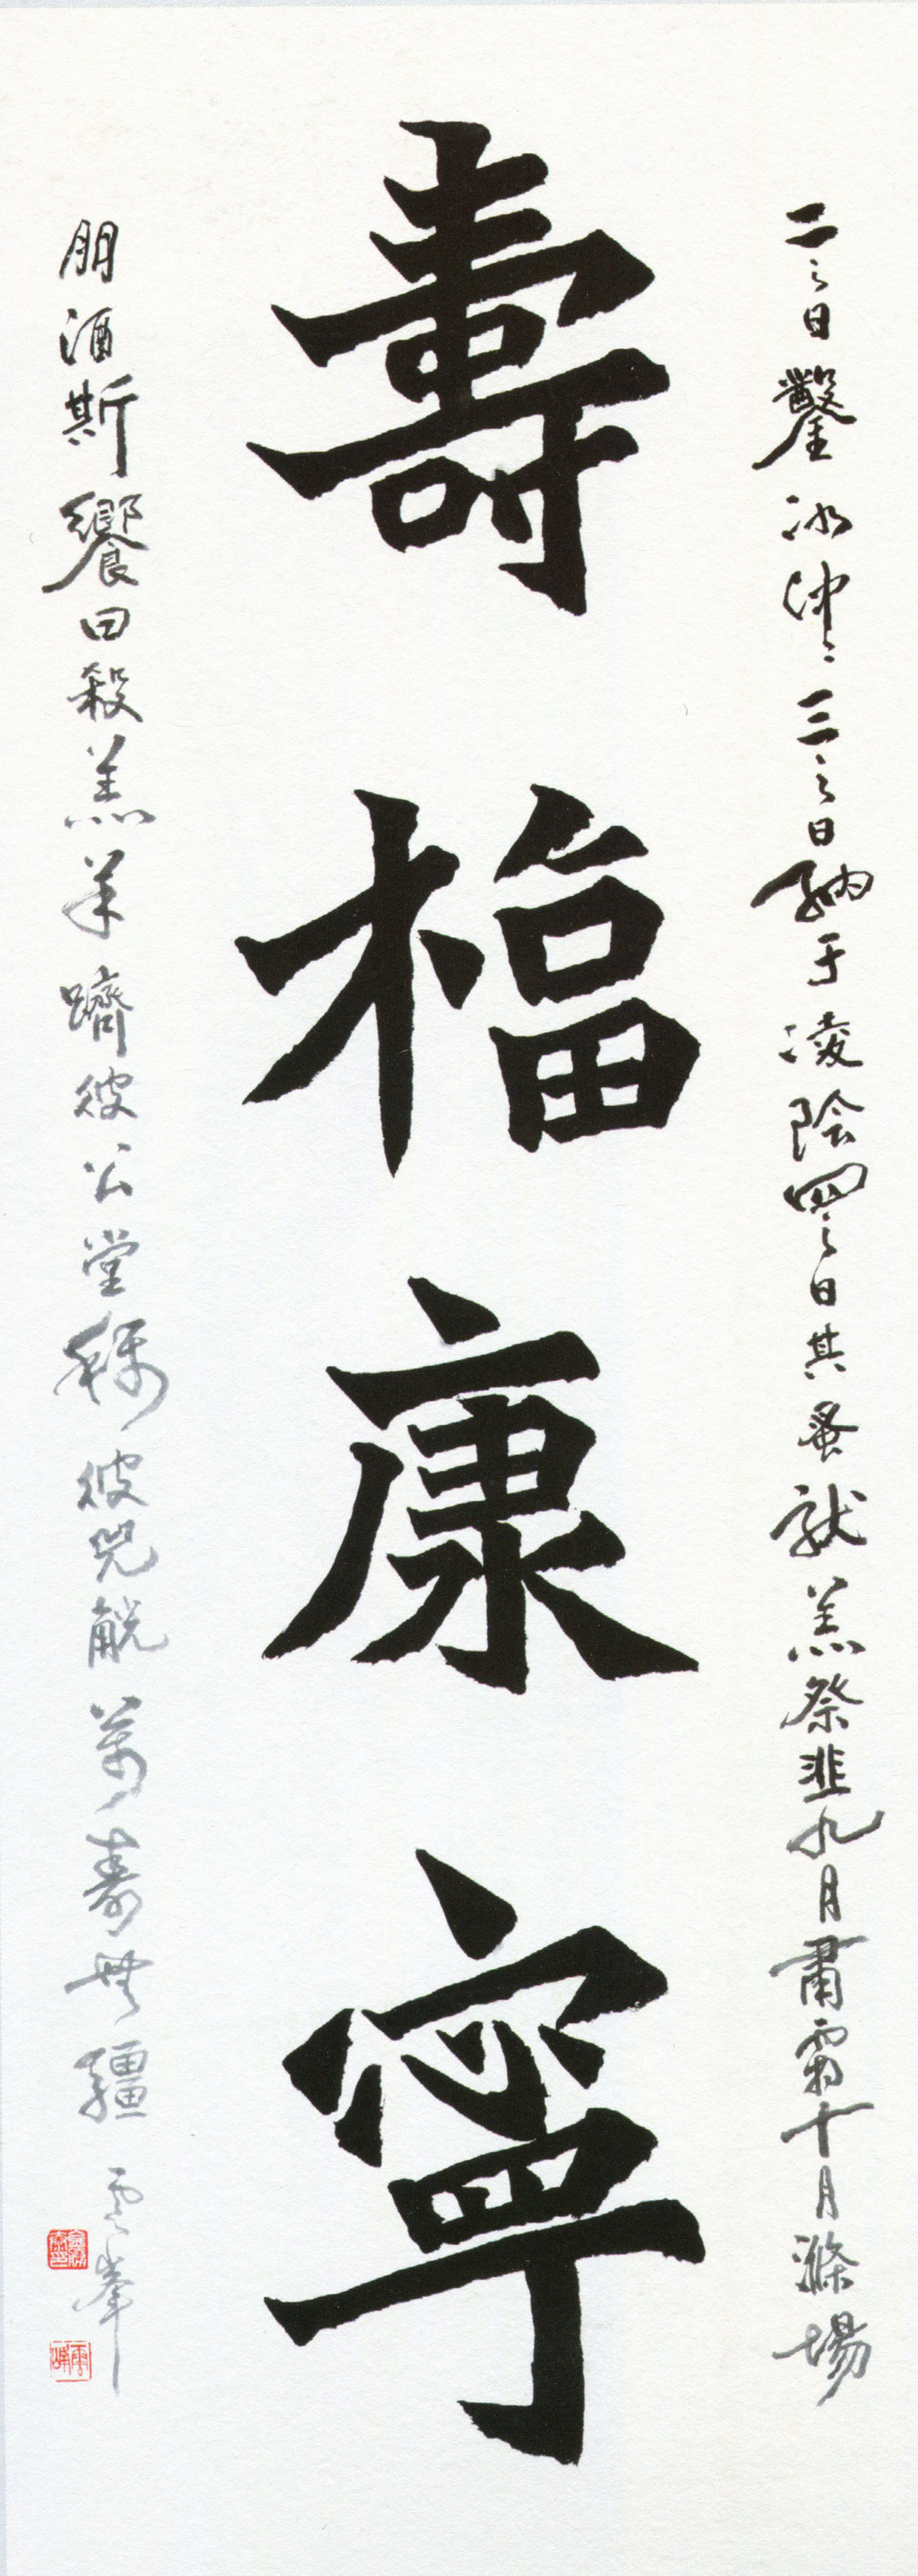 二之日鑿冰沖〻三之日納于凌陰四之日其蚤獻羔祭韭九月肅霜十月滌場
壽福康寧
朋酒斯饗曰殺羔羊躋彼公堂稱彼兕觥萬壽無疆 雲峯